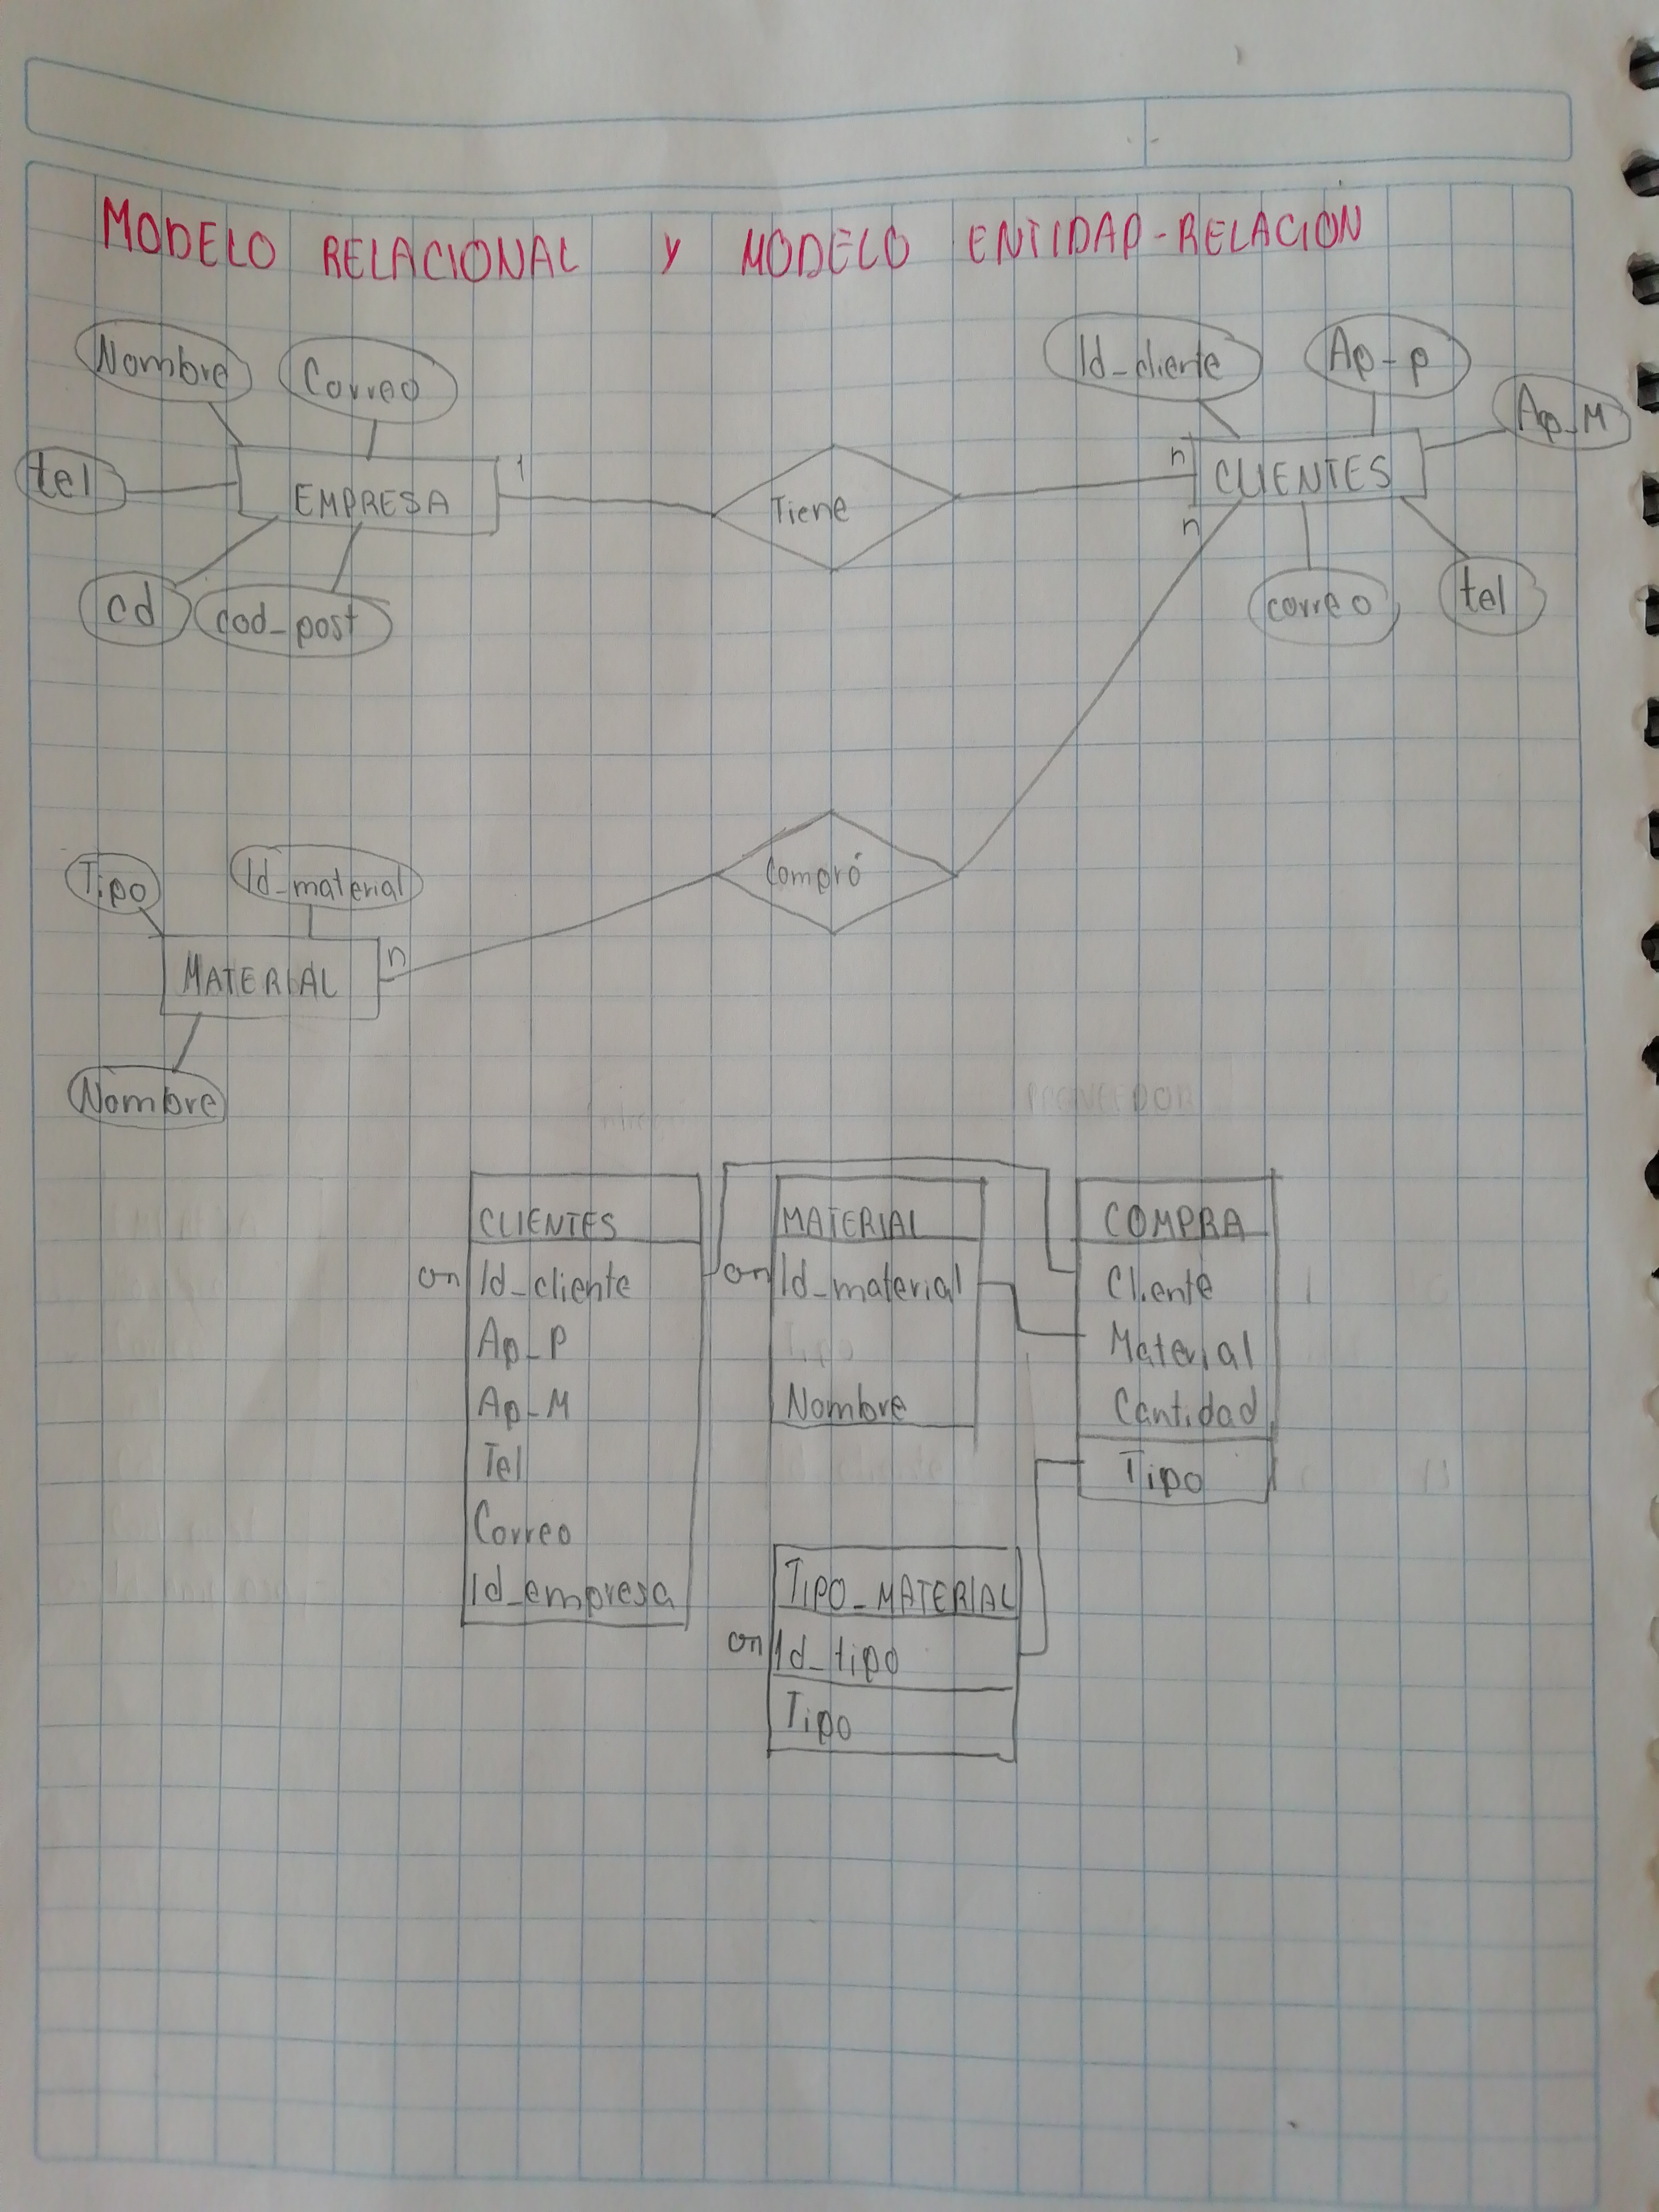 MODELO RELACIONAL Y MODELO ENTIDAD-RELACION
Nombre
Correo
tel
EMPRESA
1
cd
cod_post
Tiene
Id_cliente
Ap-p
Ap_M
n
CLIENTES
n
correo
tel
Compró
Tipo
Id_material
MATERIAL
n
Nombre
PROVEEDOR
CLIENTES
Id_cliente
Ap_P
Ap_M
Tel
Correo
Id_empresa
MATERIAL
Id_material
Nombre
COMPRA
Cliente
Material
Cantidad
Tipo
TIPO_MATERIAL
Id_tipo
Tipo